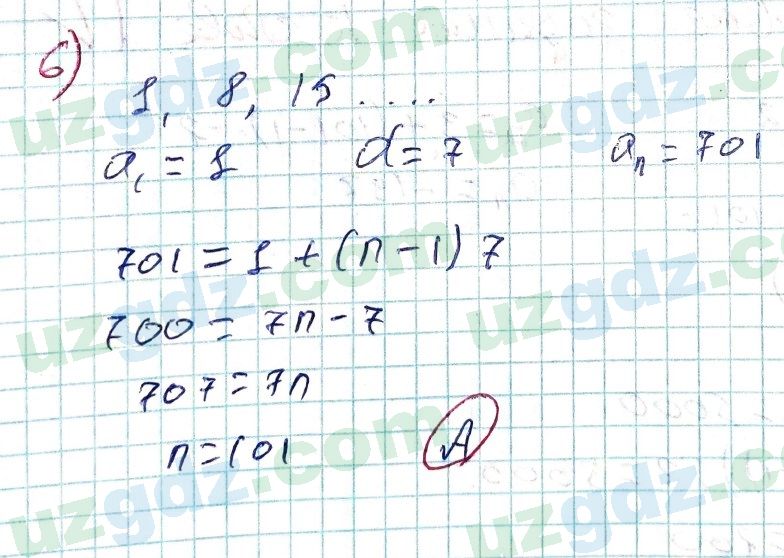 6)
1, 8, 15 ....
a₁ = 1 d = 7 aₙ = 701
701 = 1 + (n - 1) 7
700 = 7n - 7
707 = 7n
n = 101 A
uzgdz.com
uzgdz.com
uzgdz.com
uzgdz.com
uzgdz.com
uzgdz.com